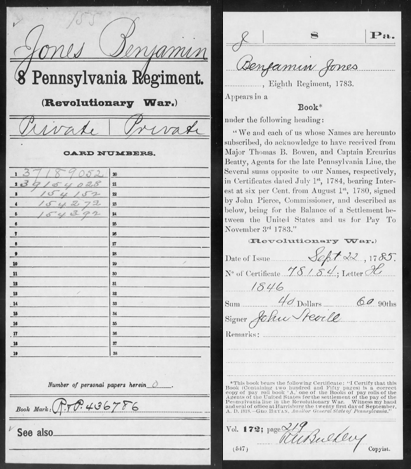 Jones Benjamin
8 Pennsylvania Regiment.
(Revolutionary War.)
Private | Private
CARD NUMBERS.
1 37189052
2 39154028
3 154152
4 154272
5 154392
6
7
8
9
10
11
12
13
14
15
16
17
18
19
20
21
22
23
24
25
26
27
28
29
30
31
32
33
34
35
36
37
38
Number of personal papers herein 0
Book Mark: R & P. 436786
See also
J | 8 | Pa.
Benjamin Jones
, Eighth Regiment, 1783.
Appears in a
Book*
under the following heading:
"We and each of us whose Names are hereunto
subscribed, do acknowledge to have received from
Major Thomas B. Bowen, and Captain Ercurius
Beatty, Agents for the late Pennsylvania Line, the
Several sums opposite to our Names, respectively,
in Certificates dated July 1st, 1784, bearing Inter-
est at six per Cent. from August 1st, 1780, signed
by John Pierce, Commissioner, and described as
below, being for the Balance of a Settlement be-
tween the United States and us for Pay To
November 3d 1783."
(Revolutionary War.)
Date of Issue Sept 22, 1785.
No of Certificate 78154; Letter
1546
Sum 40 Dollars 60 90ths
Signer John Nevill
Remarks:
*This book bears the following Certificate: "I Certify that this
Book (Containing two hundred and Fifty pages) is a correct
copy of pay roll book 'A', one of the Books of pay rolls of the
Agents of the United States for the settlement of the pay of the
Pennsylvania line in the Revolutionary War. Witness my hand
and seal of office at Harrisburg the twenty first day of September,
Vol. 172; page 219
(547) Copyist.